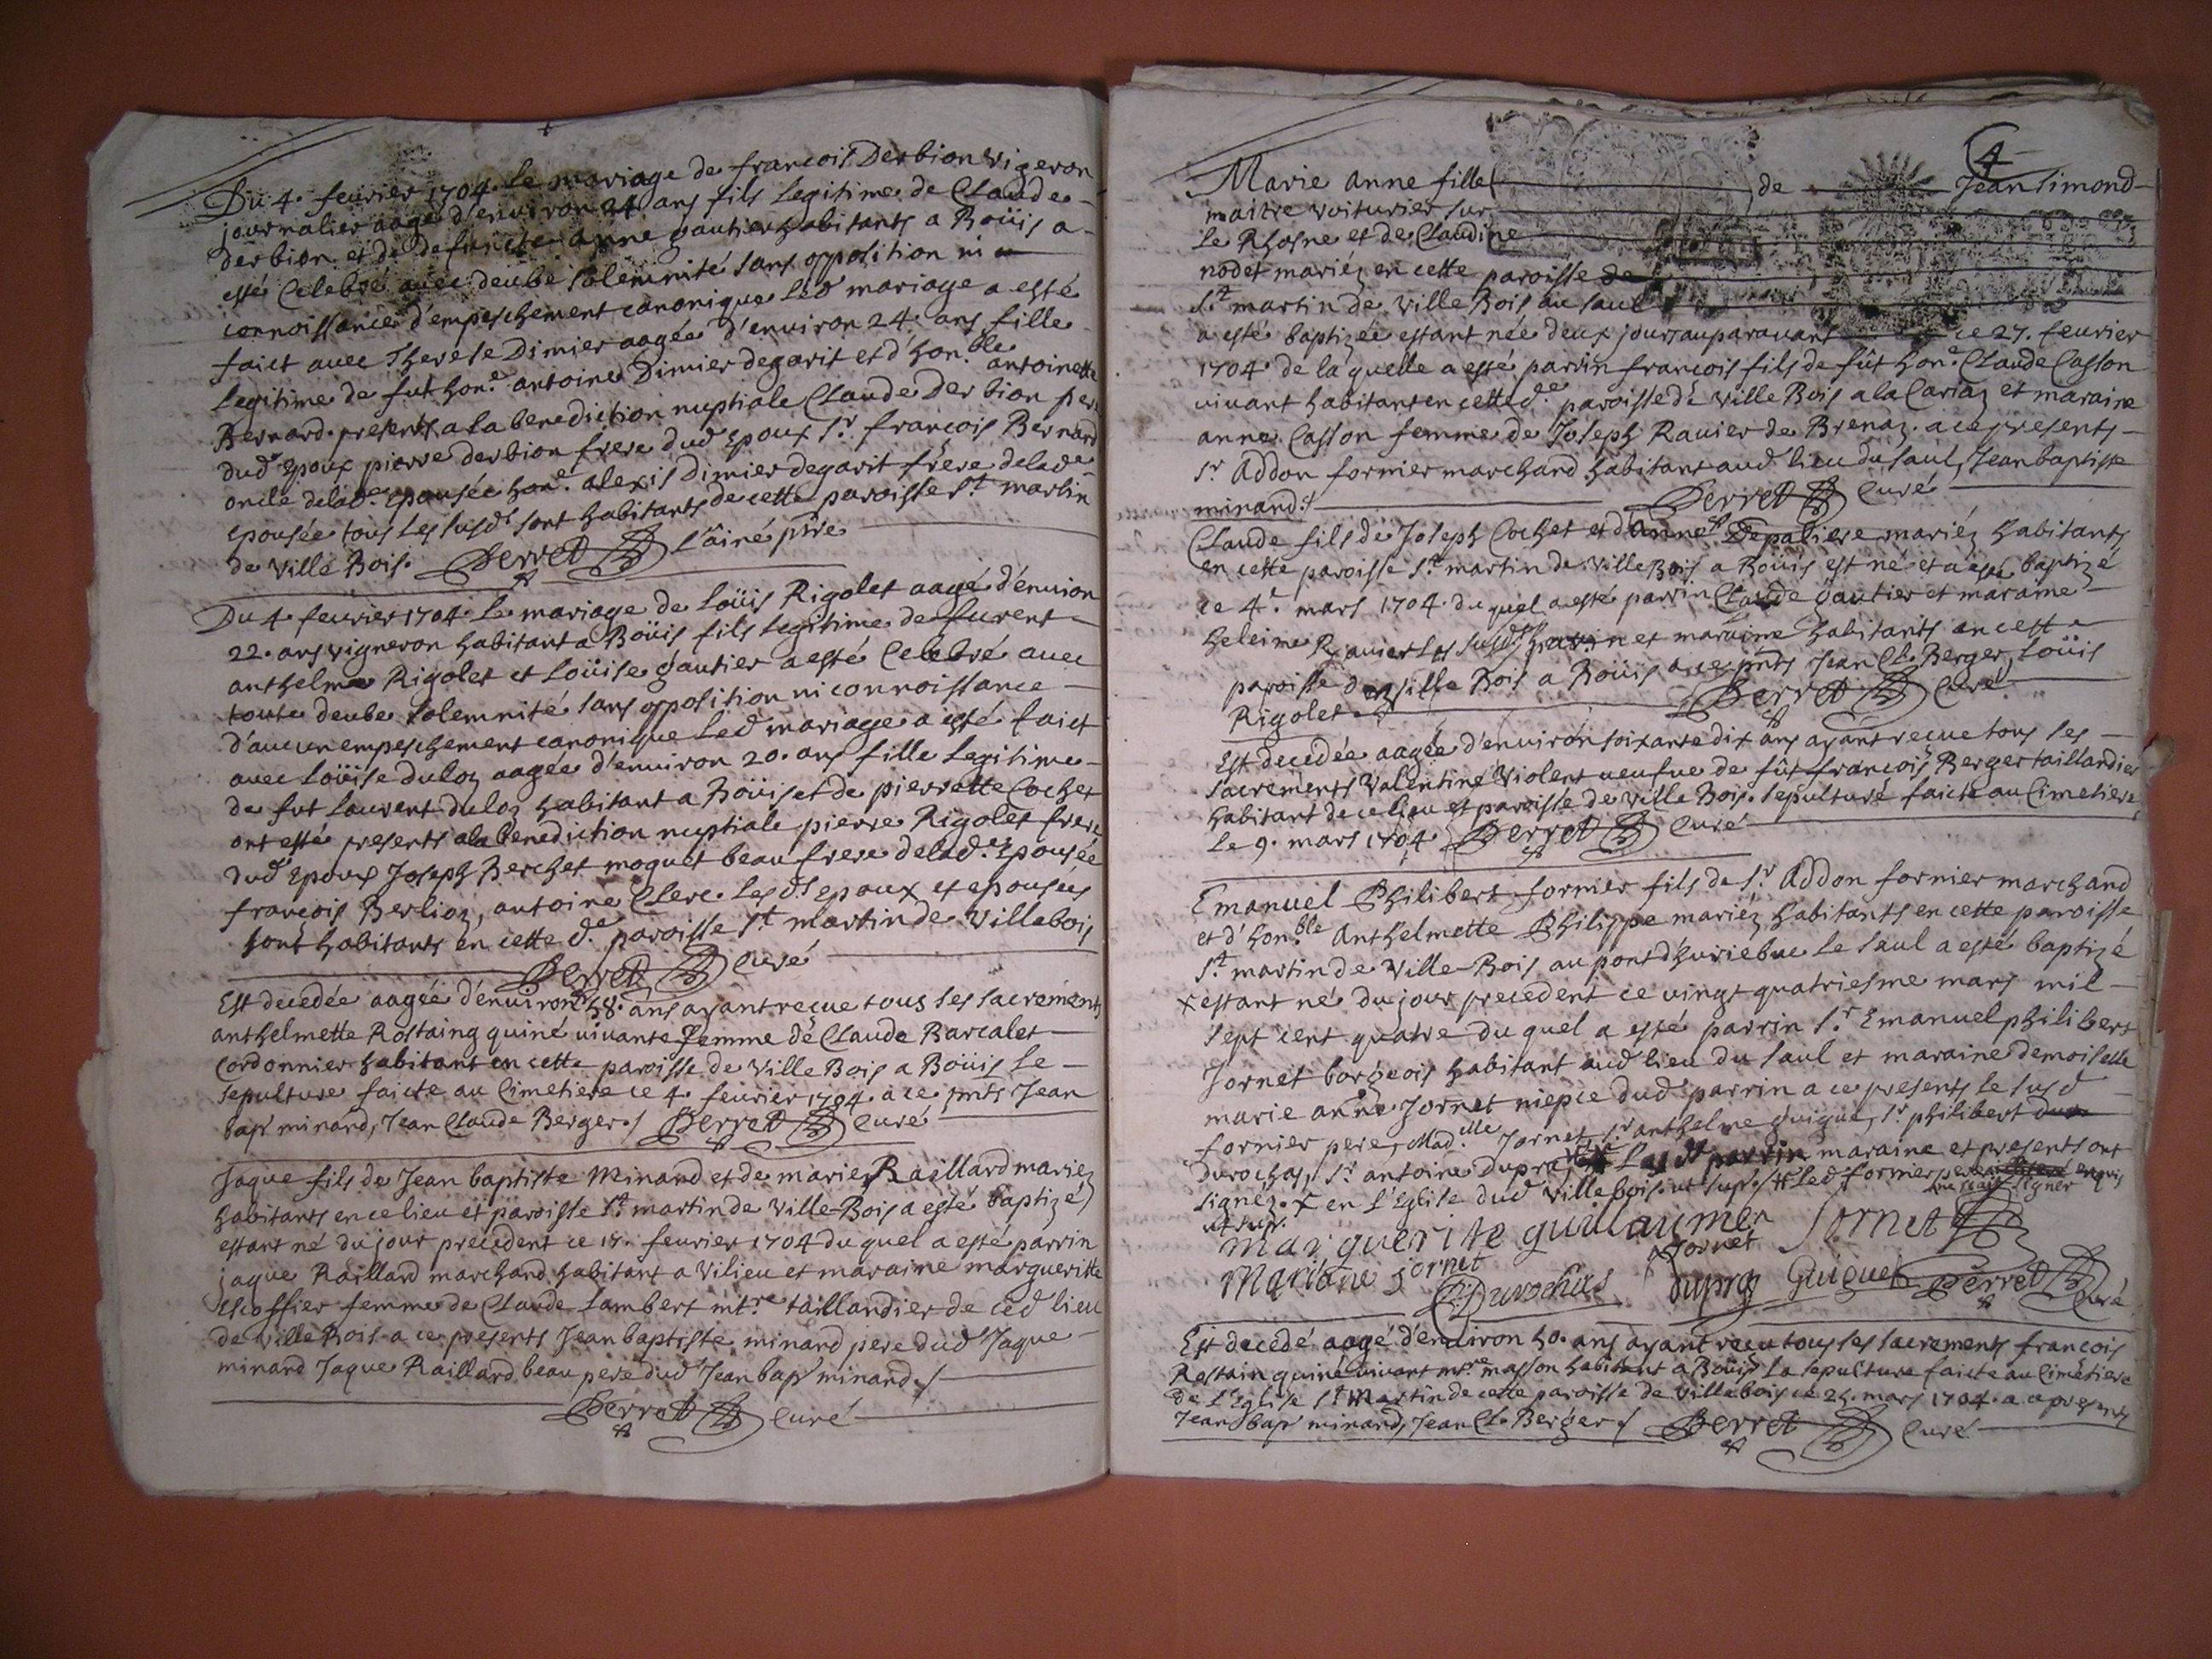 Du 4. feurier 1704. le mariage de francois Derbion vigeron
journalier aagé d'enuiron 24 ans fils legitime de Claude
derbion et de defuncte anne gautier habitants a Boüis a
esté celebré auec deube solemnité sans opposition ni
connoissance d'empeschement canonique led mariage a esté
faict auec Therese Dimier aagée d'enuiron 24. ans fille
legitime de fut hon.e antoine Dimier degarit et d'hon.ble antoinette
Bernard. presents a la benediction nuptiale Claude Derbion pere
dud Epoux pierre derbion frere dud Epoux s.r francois Bernard
oncle delad.e epousée hon.e alexis Dimier degarit frere delad.e
epousée tous les susd.s sont habitants de cette paroisse s.t martin
de Ville Bois. Perret L'ainé ptre
Du 4. feurier 1704. le mariage de Loüis Rigolet aagé d'enuiron
22. ans vigneron habitant a Boüis fils legitime de furent
anthelme Rigolet et Loüise gautier a esté Celebré auec
toute deube solemnité sans opposition ni connoissance
d'aucun empeschement canonique led mariage a esté faict
auec Loüise duloz aagée d'enuiron 20. ans fille legitime
de fut Laurent duloz habitant a Boüis et de pierrette Cochet
ont esté presents a la benediction nuptiale pierre Rigolet frere
dud Epoux Joseph Berchet moquet beau frere delad.e Epousée
francois Berlioz, antoine Clerc. les d.s epoux et epousées
sont habitants en cette d.e paroisse s.t martin de Villebois
Perret Curé
Est decedée aagée d'enuiron 58. ans ayant recue tous les sacrements
anthelmette Rostaing quiné uiuante femme de Claude Barcalet
Cordonnier habitant en cette paroisse de Ville Bois a Boüis le
sepulture faicte au Cimetiere ce 4. feurier 1704. a ce pnts Jean
bap minand, Jean Claude Berger./ Perret Curé
Jaque fils de Jean baptiste Minand et de marie Raillard mariez
habitants en ce lieu et paroisse s.t martin de Ville-Bois a esté baptizé
estant né du jour precedent ce 17. feurier 1704 du quel a esté parrin
jaque Raillard marchand habitant a Vilieu et maraine margueritte
escoffier femme de Claude Lambert mt.re taillandier de ced lieu
de Ville Bois. a ce presents Jean baptiste minand pere dud Jaque
minand Jaque Raillard beau pere dud Jean bap minand./
Perret Curé
4
Marie anne fille de Jean Simond
maitre voiturier sur
le Rhosne et de Claudine
nodet mariéz en cette paroisse de
s.t martin de Ville Bois au saul
a esté baptizée estant née deux jours auparauant ce 27. feurier
1704. de laquelle a esté parrin francois fils de fût hon.e Claude Casson
uiuant habitant en cette d.e paroisse de Ville Bois a la Cariaz et maraine
anne Casson femme de Joseph Rauier de Brenaz. a ce presents
s.r Addon fornier marchand habitant aud lieu du saul, Jean baptiste
minand:/ Perret Curé
Claude fils de Joseph Cochet et d'anne Depaliere mariéz habitants
en cette paroisse s.t martin de Ville Bois a Boüis est né et a esté baptizé
ce 4.e mars 1704. du quel a esté parrin Claude gautier et maraine
heleine Rauier les susd.s parrin et maraine habitants en ceste
paroisse de Ville Bois a Boüis a ce pnts Jean Cl. Berger, Loüis
Rigolet Perret Curé
Est decedée aagée d'enuiron soixante dix ans ayant recue tous les
sacrements Valentine Violent ueufue de fût francois Berger taillandier
habitant de ce lieu et paroisse de Ville Bois. sepulture faicte au Cimetiere
le 9. mars 1704. Perret Curé
Emanuel Philibert fornier fils de s.r Addon fornier marchand
et d'hon.ble Anthelmette Philippe mariéz habitants en cette paroisse
s.t martin de Ville-Bois au pont dhuriebue le saul a esté baptizé
x estant né du jour precedent ce uingt quatriesme mars mil
sept cent quatre du quel a esté parrin s.r Emanuel philibert
Jornet borgeois habitant aud lieu du saul et maraine demoiselle
marie anne Jornet niepce dud parrin a ce presents le susd
fornier pere, Mad.lle Jornet, s.r anthelme guigue, s.r philibert
durochas, s.r antoine dupraz Les d.s parrin maraine et presents ont
signez. x en L'Eglise dud Villebois. ut sup./ led fornier pere enquis
ne scait signer
ut sup.
marguerite guillaumer Jornet Jornet
Mariane jornet Durochas dupraz Guigue Perret Curé
Est decedé aagé d'enuiron 50. ans ayant receu tous les sacrements francois
Rostain quiné uiuant mt.re masson habitant a Boüis La sepulture faicte au Cimetiere
de L'Eglise s.t Martin de cette paroisse de Villebois ce 25. mars 1704. a ce presents
Jean bap minand, Jean Cl. Berger./ Perret Curé